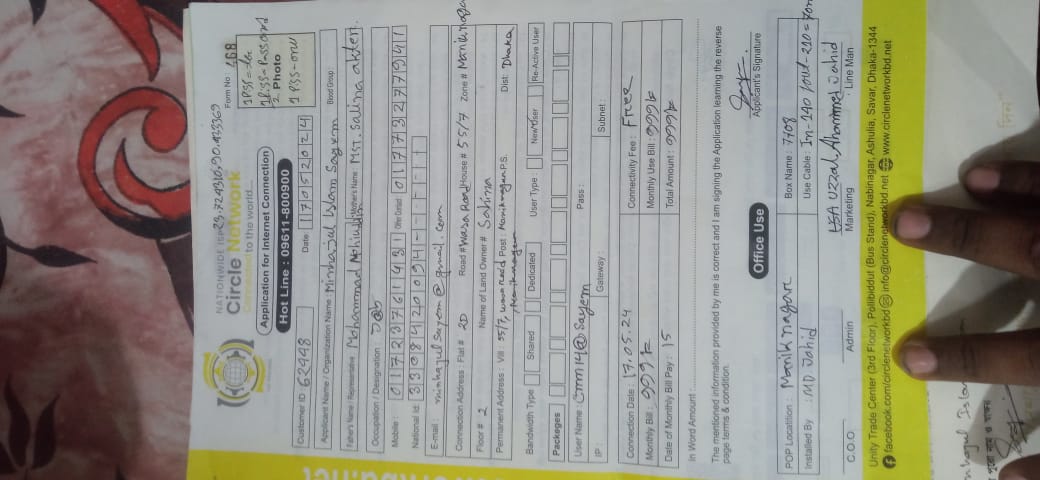 NATIONWIDE ISP
23.724316,90.423369
Circle Network
Connected to the world
Application for Internet Connection
Hot Line : 09611-800900
Form No : 468
Photo
Customer ID : 62448
Date : 17052024
Applicant Name / Organization Name : Minhajul Islam Sayem
Blood Group :
Father's Name / Representative : Mohammad Mohiuddin Mother's Name : Mst. Salina akter.
Occupation / Designation : Job
Mobile : 01723761431 Other Contact : 01773277941
National Id : 3308420094
E-mail : minhajulsayem@gmail.com
Connection Address : Flat # 2D Road # Wasa Road House # 55/7 Zone # Maniknagar
Floor # 2 Name of Land Owner # Salina
Permanent Address Vill : 55/7 wasa road Post : Maniknagar P.S. Maniknagar Dist: Dhaka,
Bandwidth Type : Shared Dedicated User Type : New User Re-Active User
Packages
User Name : Cmm14@Sayem Pass :
IP : Gateway: Subnet:
Connection Date : 17.05.24 Connectivity Fee : Free
Monthly Bill : 999 Monthly Use Bill : 999
Date of Monthly Bill Pay : 15 Total Amount : 999
In Word Amount
The mentioned information provided by me is correct and I am signing the Application learning the reverse
page terms & condition.
Applicant's Signature
Office Use
POP Locatition : Maniknagar Box Name : 7708
Installed By : MD Jahid Use Cable : In-140 / out-210 =
Uzzal, Ahammed Jahid
C.O.O Admin Marketing Line Man
Unity Trade Center (3rd Floor), Pollibiddut (Bus Stand), Nabinagar, Ashulia, Savar, Dhaka-1344
facebook.com/circlenetworkbd info@circlenetworkbd.net www.circlenetworkbd.net